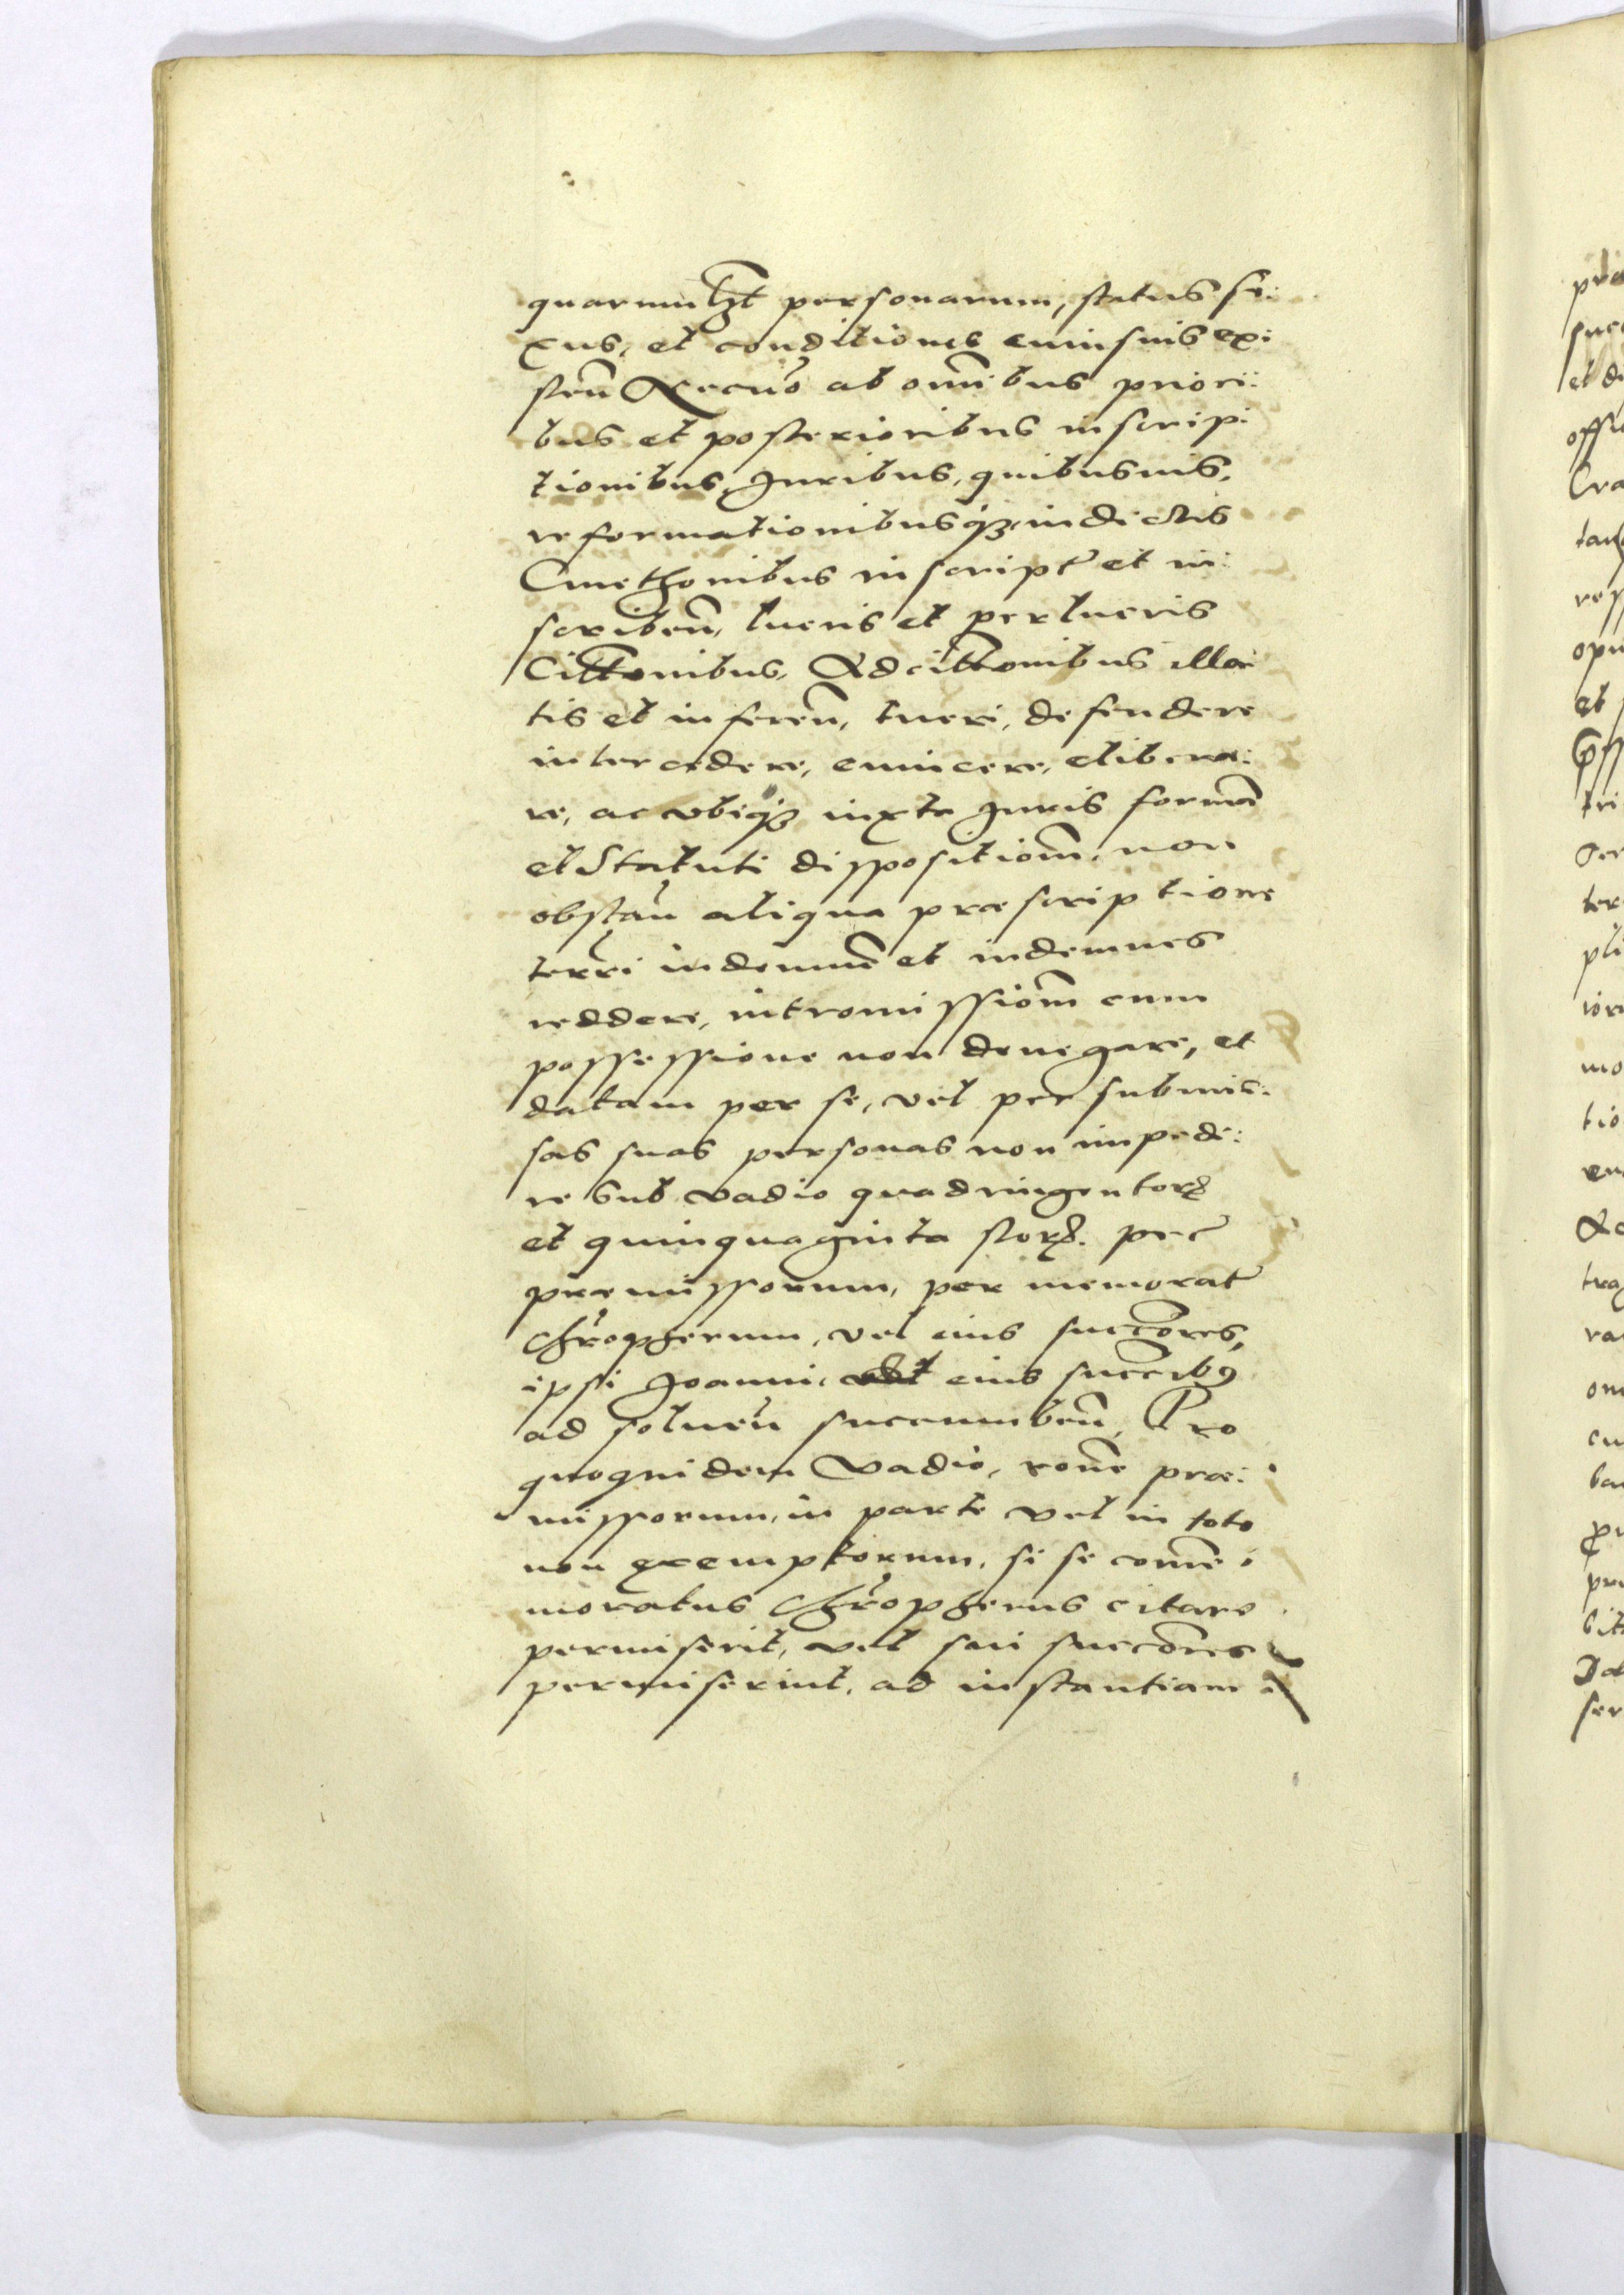 quarumlꝫt personarum, status se:
xus, et conditiones cuiusuis exi:
steñ Necnõ ab omĩbus priori:
bus et posterioribus inscrip:
tionibus, Juribus, quibusuis,
reformationibusqꝫ, in dictis
Cmethonibus inscript̃ et in:
scribeñ, lucris et perlucris
Citt̃onibus, Adcitt̃onibus illa:
tis et infereñ, tueri, defendere
intercedere, euincere, elibera:
re, ac vbiqꝫ iuxta Juris formã
et Statuti dispositiom̃, non
obstañ aliqua præscriptione
terrĩ indemnẽ et indemnes
reddere, intromissiom̃ cum
possessione non denegare, et
datam per se, vel per submis:
sas suas personas non impedi:
re Sub vadio quadringentorꝫ
et quinquaginta florꝫ. per̃
præmissorum, per memorat̃
Chr̃opherum, vel eius succõres,
ipsi Joanni, vel eius succr̃ibꝰ
ad solueñ succumbeñ, Pro
quoquidem Vadio, rõne præ:
missorum, in parte vel in toto
non exemptorum, si se com̃e:
moratus Chr̃opherus citare
permiserit, vel sui succõres
permiserint, ad instantiam